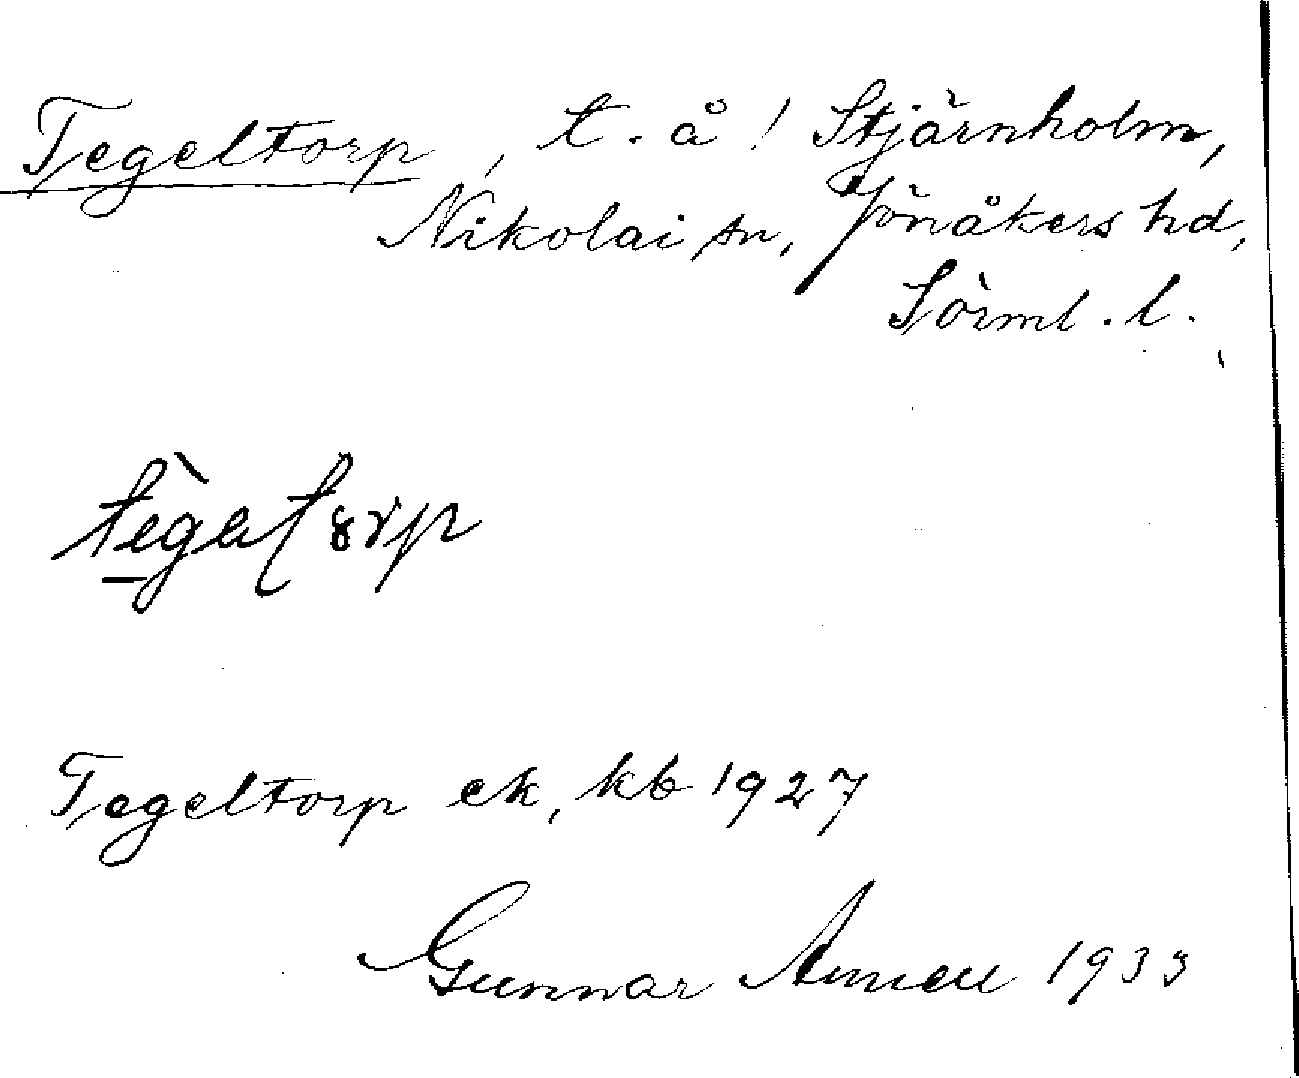 Tegeltorp, t. å / Stjärnholm,
Nikolai sn, Jönåkers hd,
Sörml. l.
Tegeltorp ek, kb 1927
Gunnar 1933